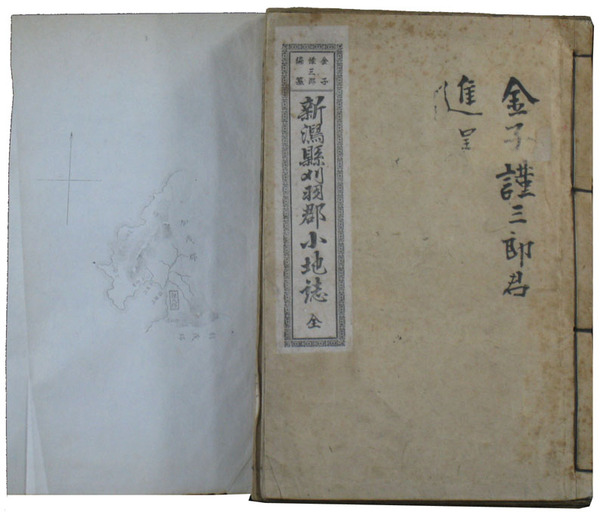 金子謹三郎君
進呈
金子
三郎
編纂
新潟縣刈羽郡小地誌 全